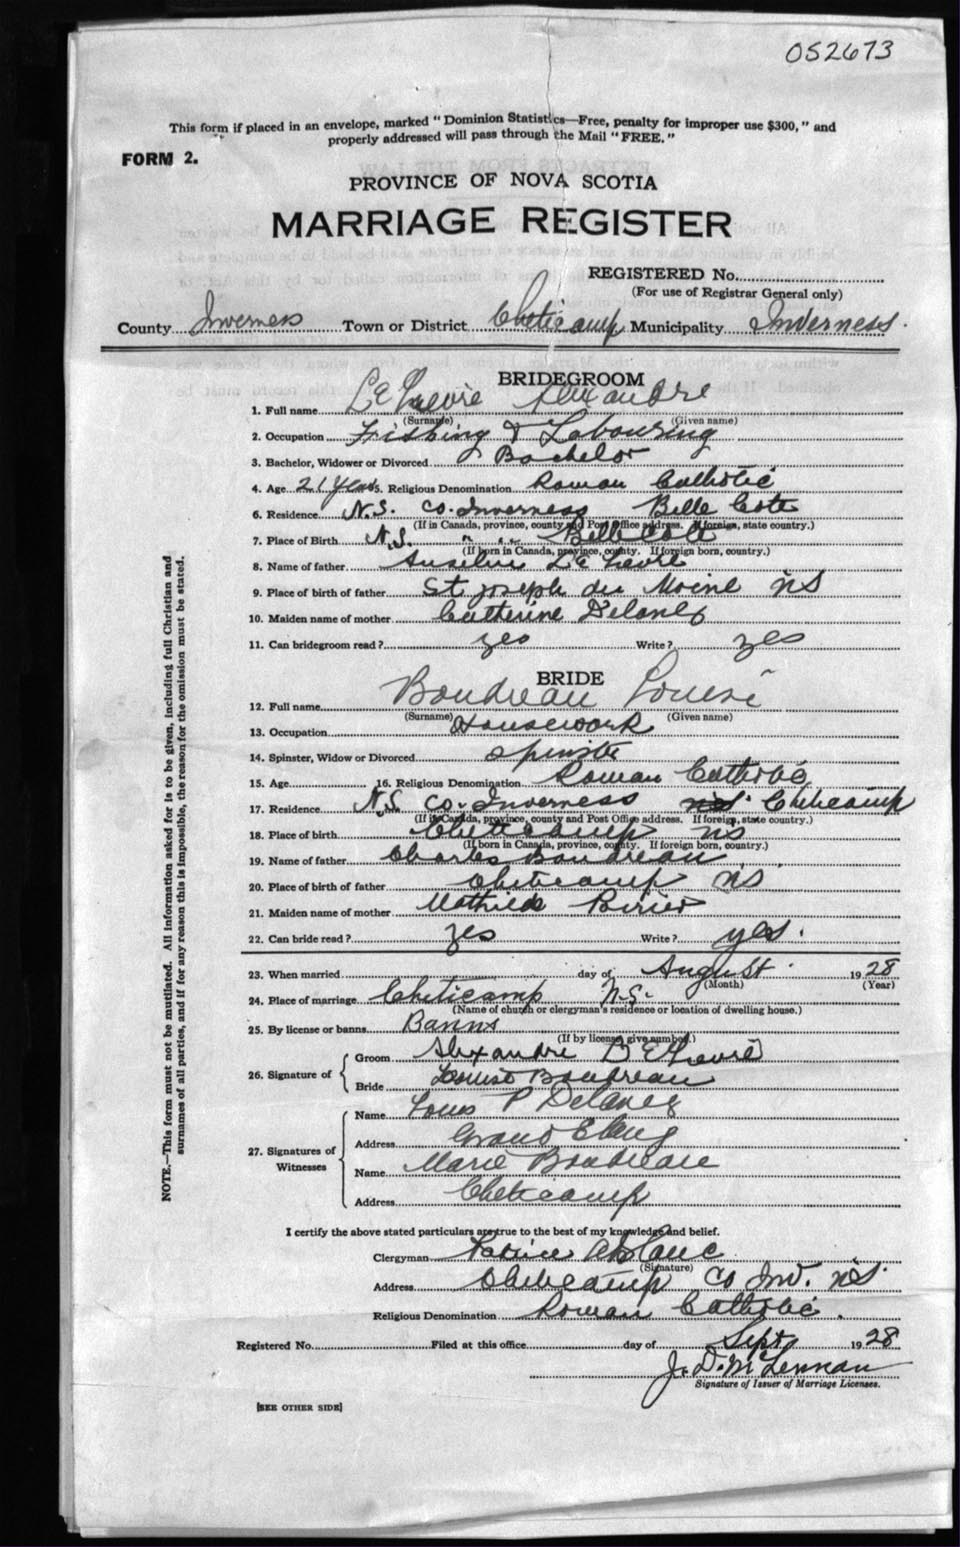 052673
This form if placed in an envelope, marked "Dominion Statistics—Free, penalty for improper use $300," and
properly addressed will pass through the Mail "FREE."
FORM 2.
PROVINCE OF NOVA SCOTIA
MARRIAGE REGISTER
REGISTERED No.
(For use of Registrar General only)
County Inverness Town or District Cheticamp Municipality Inverness.
BRIDEGROOM
1. Full name Alexandre
(Surname) (Given name)
2. Occupation Fishing & Labouring
3. Bachelor, Widower or Divorced Bachelor
4. Age 21 Years 5. Religious Denomination Roman Catholic
6. Residence N.S. Co. Inverness Belle Cote
(If in Canada, province, county and Post Office address. If foreign, state country.)
7. Place of Birth N.S. " " Belle Cote
(If born in Canada, province, county. If foreign born, country.)
8. Name of father
9. Place of birth of father St Joseph du Moine NS
10. Maiden name of mother Catherine Delaney
11. Can bridegroom read? yes Write? yes
BRIDE
12. Full name Boudreau Louise
(Surname) (Given name)
13. Occupation Housework
14. Spinster, Widow or Divorced
15. Age 16. Religious Denomination Roman Catholic
17. Residence N.S. Co. Inverness Cheticamp
(If in Canada, province, county and Post Office address. If foreign, state country.)
18. Place of birth Cheticamp NS
(If born in Canada, province, county. If foreign born, country.)
19. Name of father Charles Boudreau
20. Place of birth of father Cheticamp NS
21. Maiden name of mother Mathilde
22. Can bride read? yes Write? yes.
23. When married day of August 1928
(Month) (Year)
24. Place of marriage Cheticamp N.S.
(Name of church or clergyman's residence or location of dwelling house.)
25. By license or banns Banns
(If by license, give number.)
26. Signature of Groom Alexandre
Bride Louise Boudreau
27. Signatures of Witnesses Name Louis P Delaney
Address Grand Etang
Name Marie Boudreau
Address Cheticamp
I certify the above stated particulars are true to the best of my knowledge and belief.
Clergyman
(Signature)
Address Cheticamp Co Inv. NS.
Religious Denomination Roman Catholic.
Registered No. Filed at this office day of Sept 1928
J. D. McLennan
Signature of Issuer of Marriage Licenses.
[SEE OTHER SIDE]
NOTE.—This form must not be mutilated. All information asked for is to be given, including full Christian and
surnames of all parties, and if for any reason this is impossible, the reason for the omission must be stated.